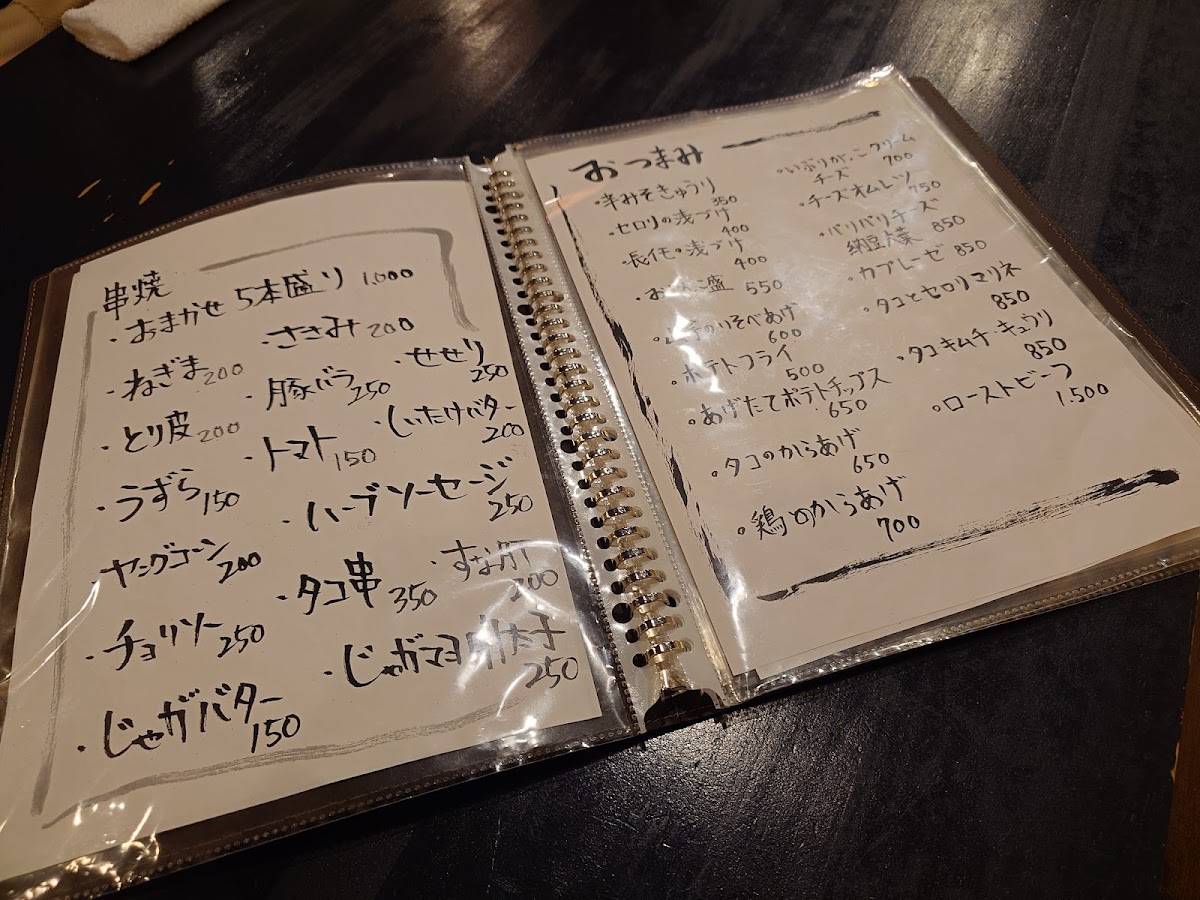 串焼
・おまかせ 5本盛り 1,000
・ねぎま 200
・とり皮 200
・うずら 150
・ヤングコーン 200
・チョリソー 250
・じゃがバター 150
・ささみ 200
・豚バラ 250
・トマト 150
・ハーブソーセージ 250
・タコ串 350
・じゃがマヨ明太子 250
・せせり 250
・しいたけバター 200
・すな肝 200
おつまみ
・辛みそきゅうり 350
セロリの浅づけ 400
・長芋の浅づけ 400
盛 550
のいそべあげ 600
・ポテトフライ 500
・あげたてポテトチップス 650
・タコのからあげ 650
・鶏ももからあげ 700
・いぶりがっこクリーム
チーズ 700
・チーズオムレツ 750
・パリパリチーズ
納豆大葉 850
・カプレーゼ 850
・タコとセロリマリネ 850
・タコキムチ・キュウリ 850
・ローストビーフ 1,500